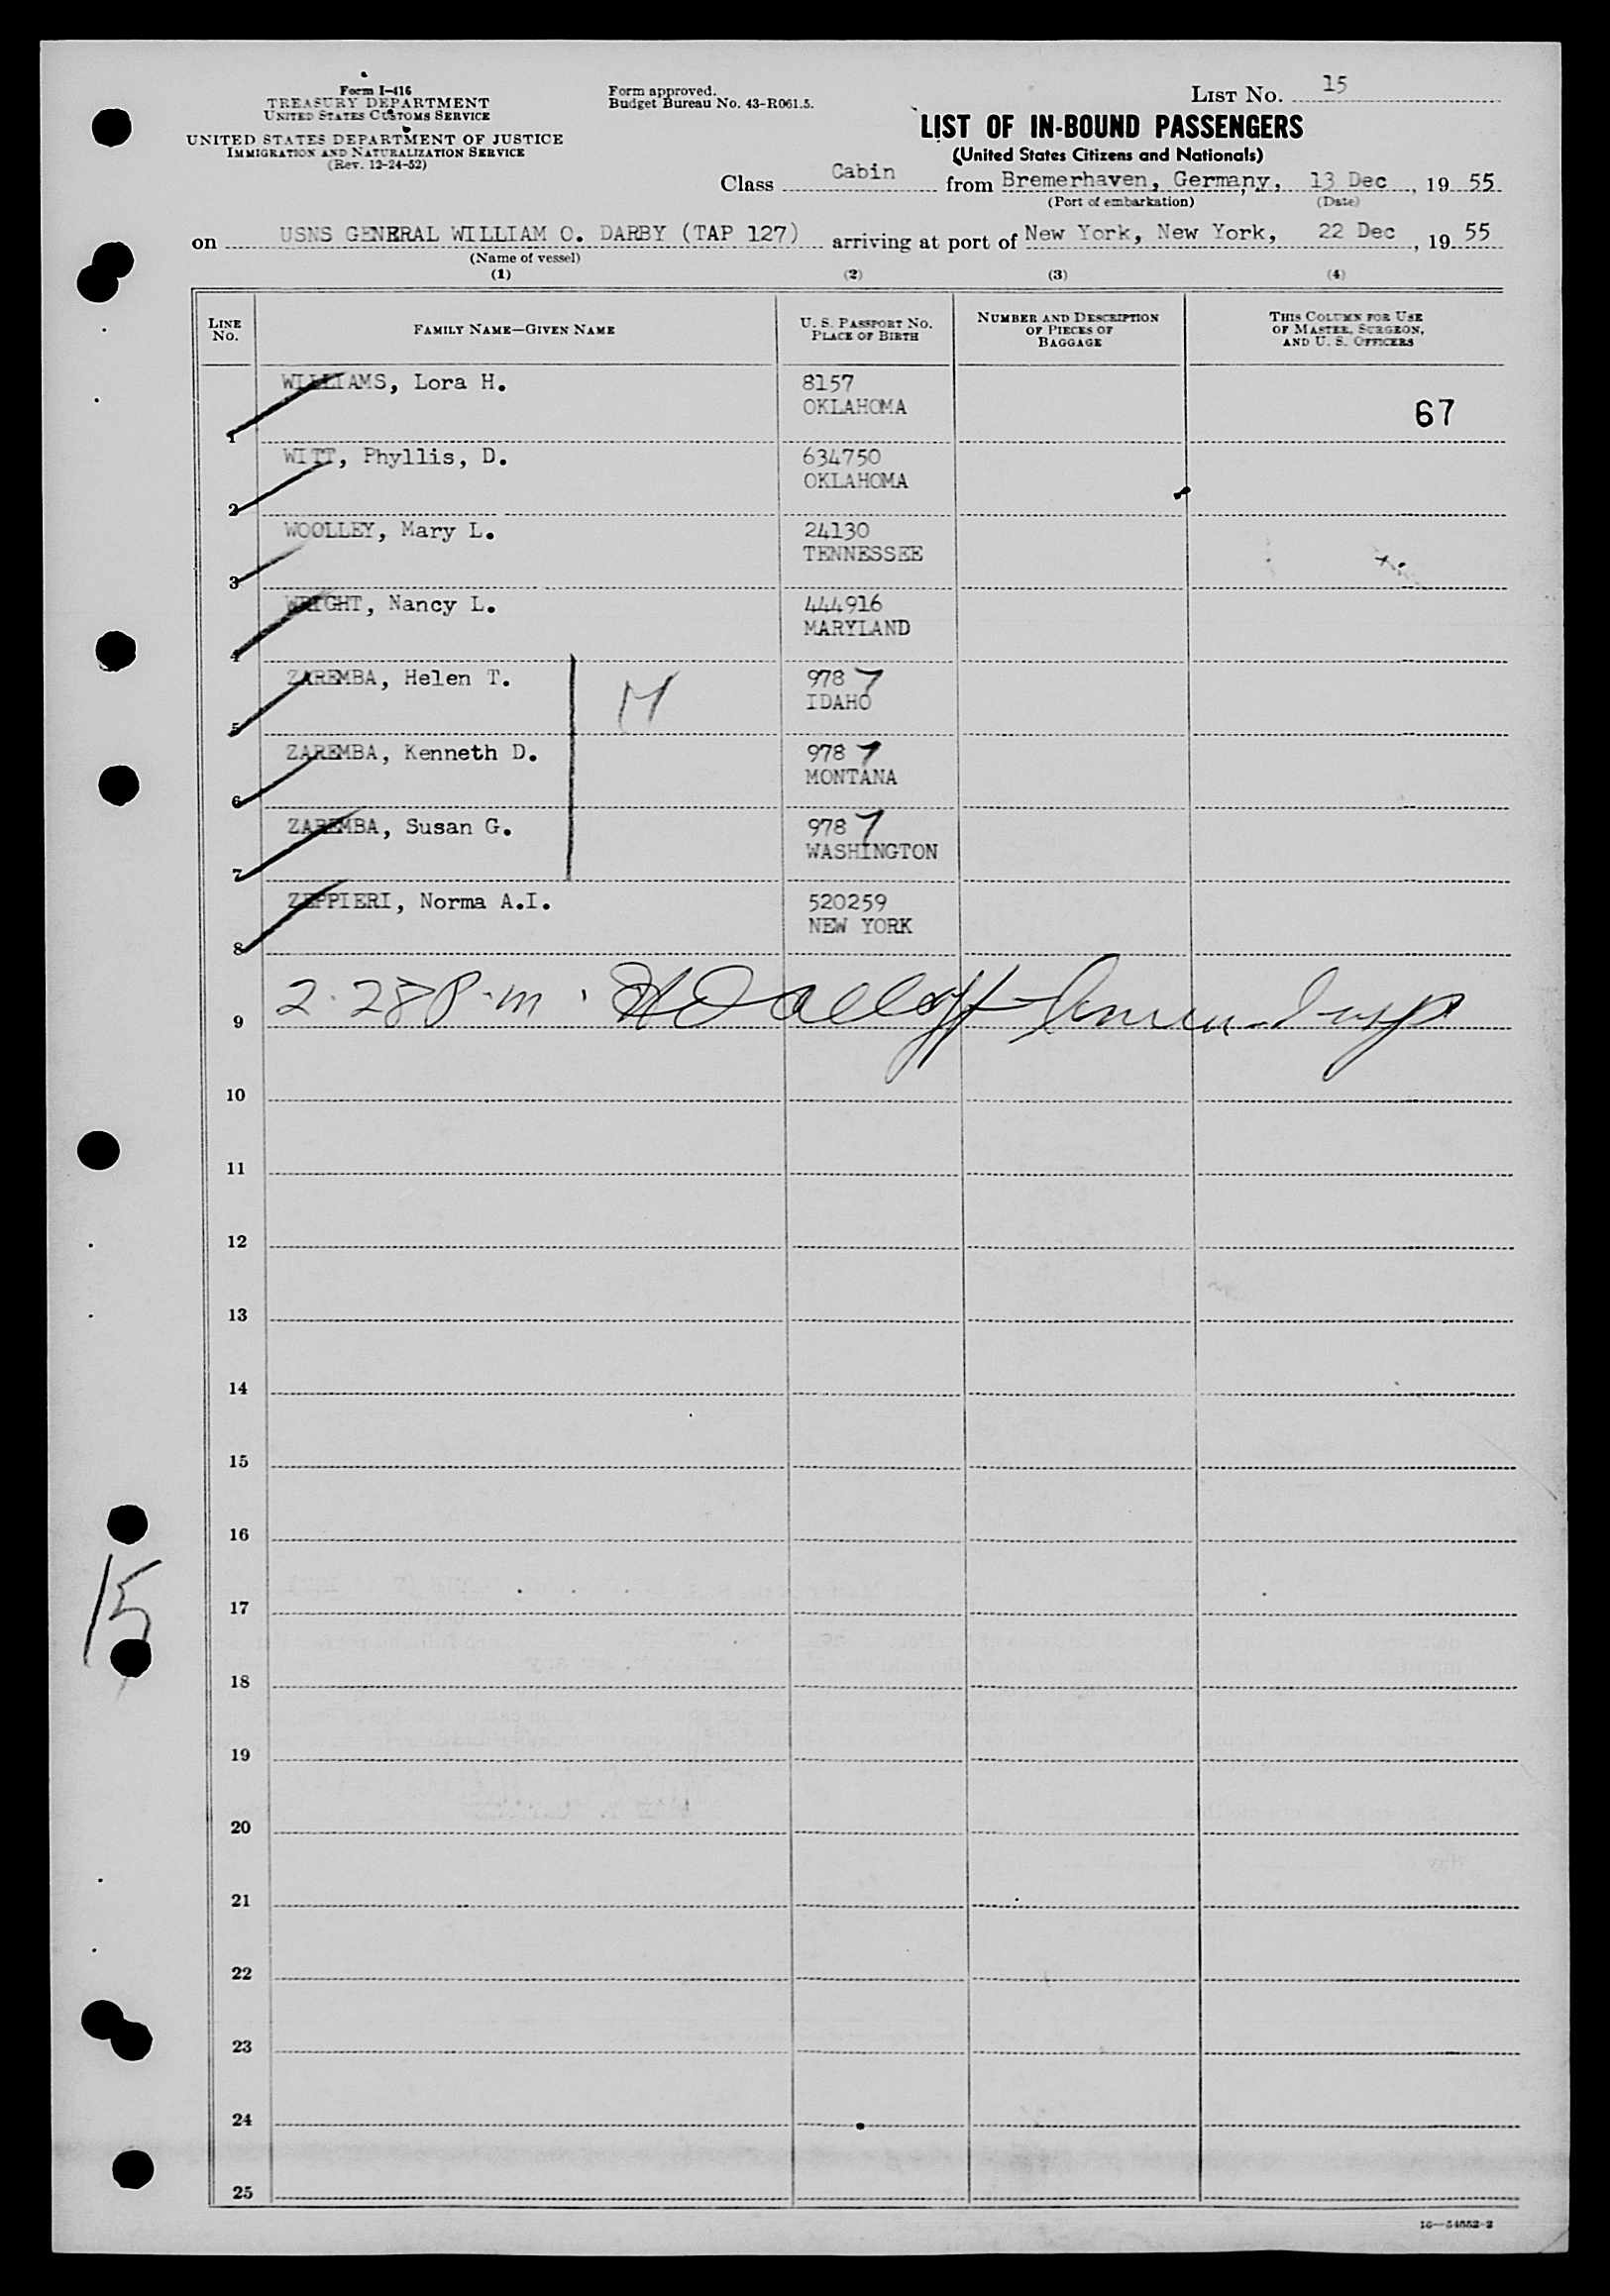 Form I-416
TREASURY DEPARTMENT
UNITED STATES CUSTOMS SERVICE
UNITED STATES DEPARTMENT OF JUSTICE
IMMIGRATION AND NATURALIZATION SERVICE
(Rev. 12-24-52)
Form approved.
Budget Bureau No. 43-R061.5.
LIST No. 15
LIST OF IN-BOUND PASSENGERS
(United States Citizens and Nationals)
Class Cabin from Bremerhaven, Germany, 13 Dec, 19 55
(Port of embarkation) (Date)
on USNS GENERAL WILLIAM O. DARBY (TAP 127) arriving at port of New York, New York, 22 Dec, 19 55
(Name of vessel)
(1) (2) (3) (4)
LINE No. FAMILY NAME—GIVEN NAME U. S. PASSPORT No. PLACE OF BIRTH NUMBER AND DESCRIPTION OF PIECES OF BAGGAGE THIS COLUMN FOR USE OF MASTER, SURGEON, AND U. S. OFFICERS
WILLIAMS, Lora H. 8157
OKLAHOMA
1 67
WITT, Phyllis, D. 634750
OKLAHOMA
2
WOOLLEY, Mary L. 24130
TENNESSEE
3
WRIGHT, Nancy L. 444916
MARYLAND
4
ZAREMBA, Helen T. 978 7
IDAHO
5
ZAREMBA, Kenneth D. 978 7
MONTANA
6
ZAREMBA, Susan G. 978 7
WASHINGTON
7
ZEPPIERI, Norma A.I. 520259
NEW YORK
8
9 2.28 P.m. Insp
10
11
12
13
14
15
16
15
17
18
19
20
21
22
23
24
25
16—54652-2